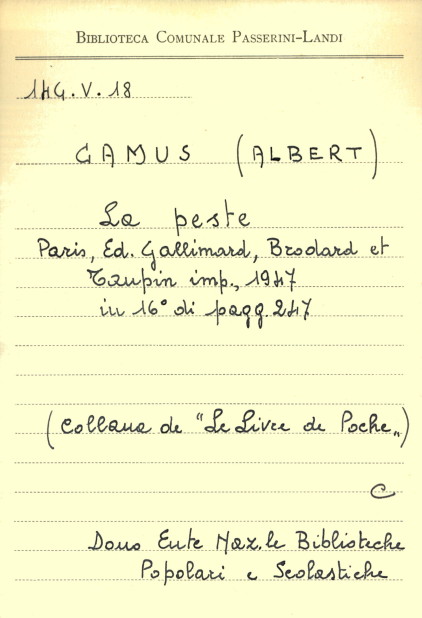 BIBLIOTECA COMUNALE PASSERINI-LANDI
14G.V.18
CAMUS (ALBERT)
La peste
Paris, Ed. Gallimard, Brodard et
Taupin imp., 1947
in 16° di pagg. 247
(collana de "Le Livre de Poche„)
C
Dono Ente Naz.le Biblioteche
Popolari e Scolastiche